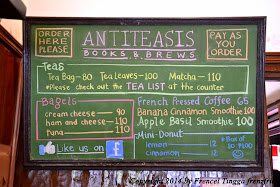 ORDER
HERE
PLEASE
ANTITEASIS
BOOKS & BREWS
PAY AS
YOU
ORDER
Teas
Tea Bag-80 Tea leaves-100 Matcha-110
*Please check out the TEA LIST at the counter
Bagels
cream cheese 90
ham and cheese 110
tuna 110
Like us on f
French Pressed Coffee 65
Banana Cinnamon Smoothie 100
Apple Basil Smoothie 100
Mini-Donut
lemon 12
cinnamon 12
*Box of
Copyright 2014 by Frencel Tingga